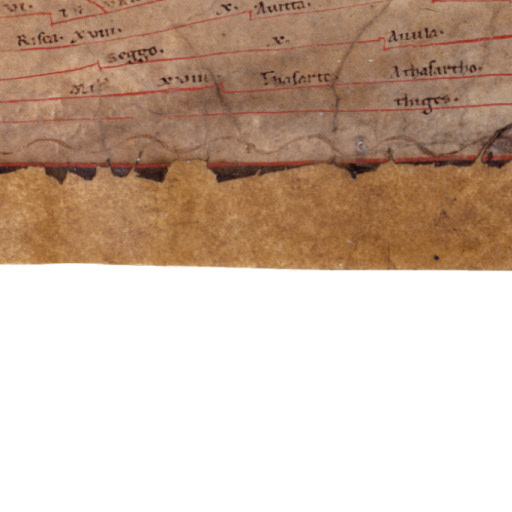 x. Auitta.
Risca. xviii.
x. Anula.
seggo.
xviii Thasarte Athasartho.
thiges.